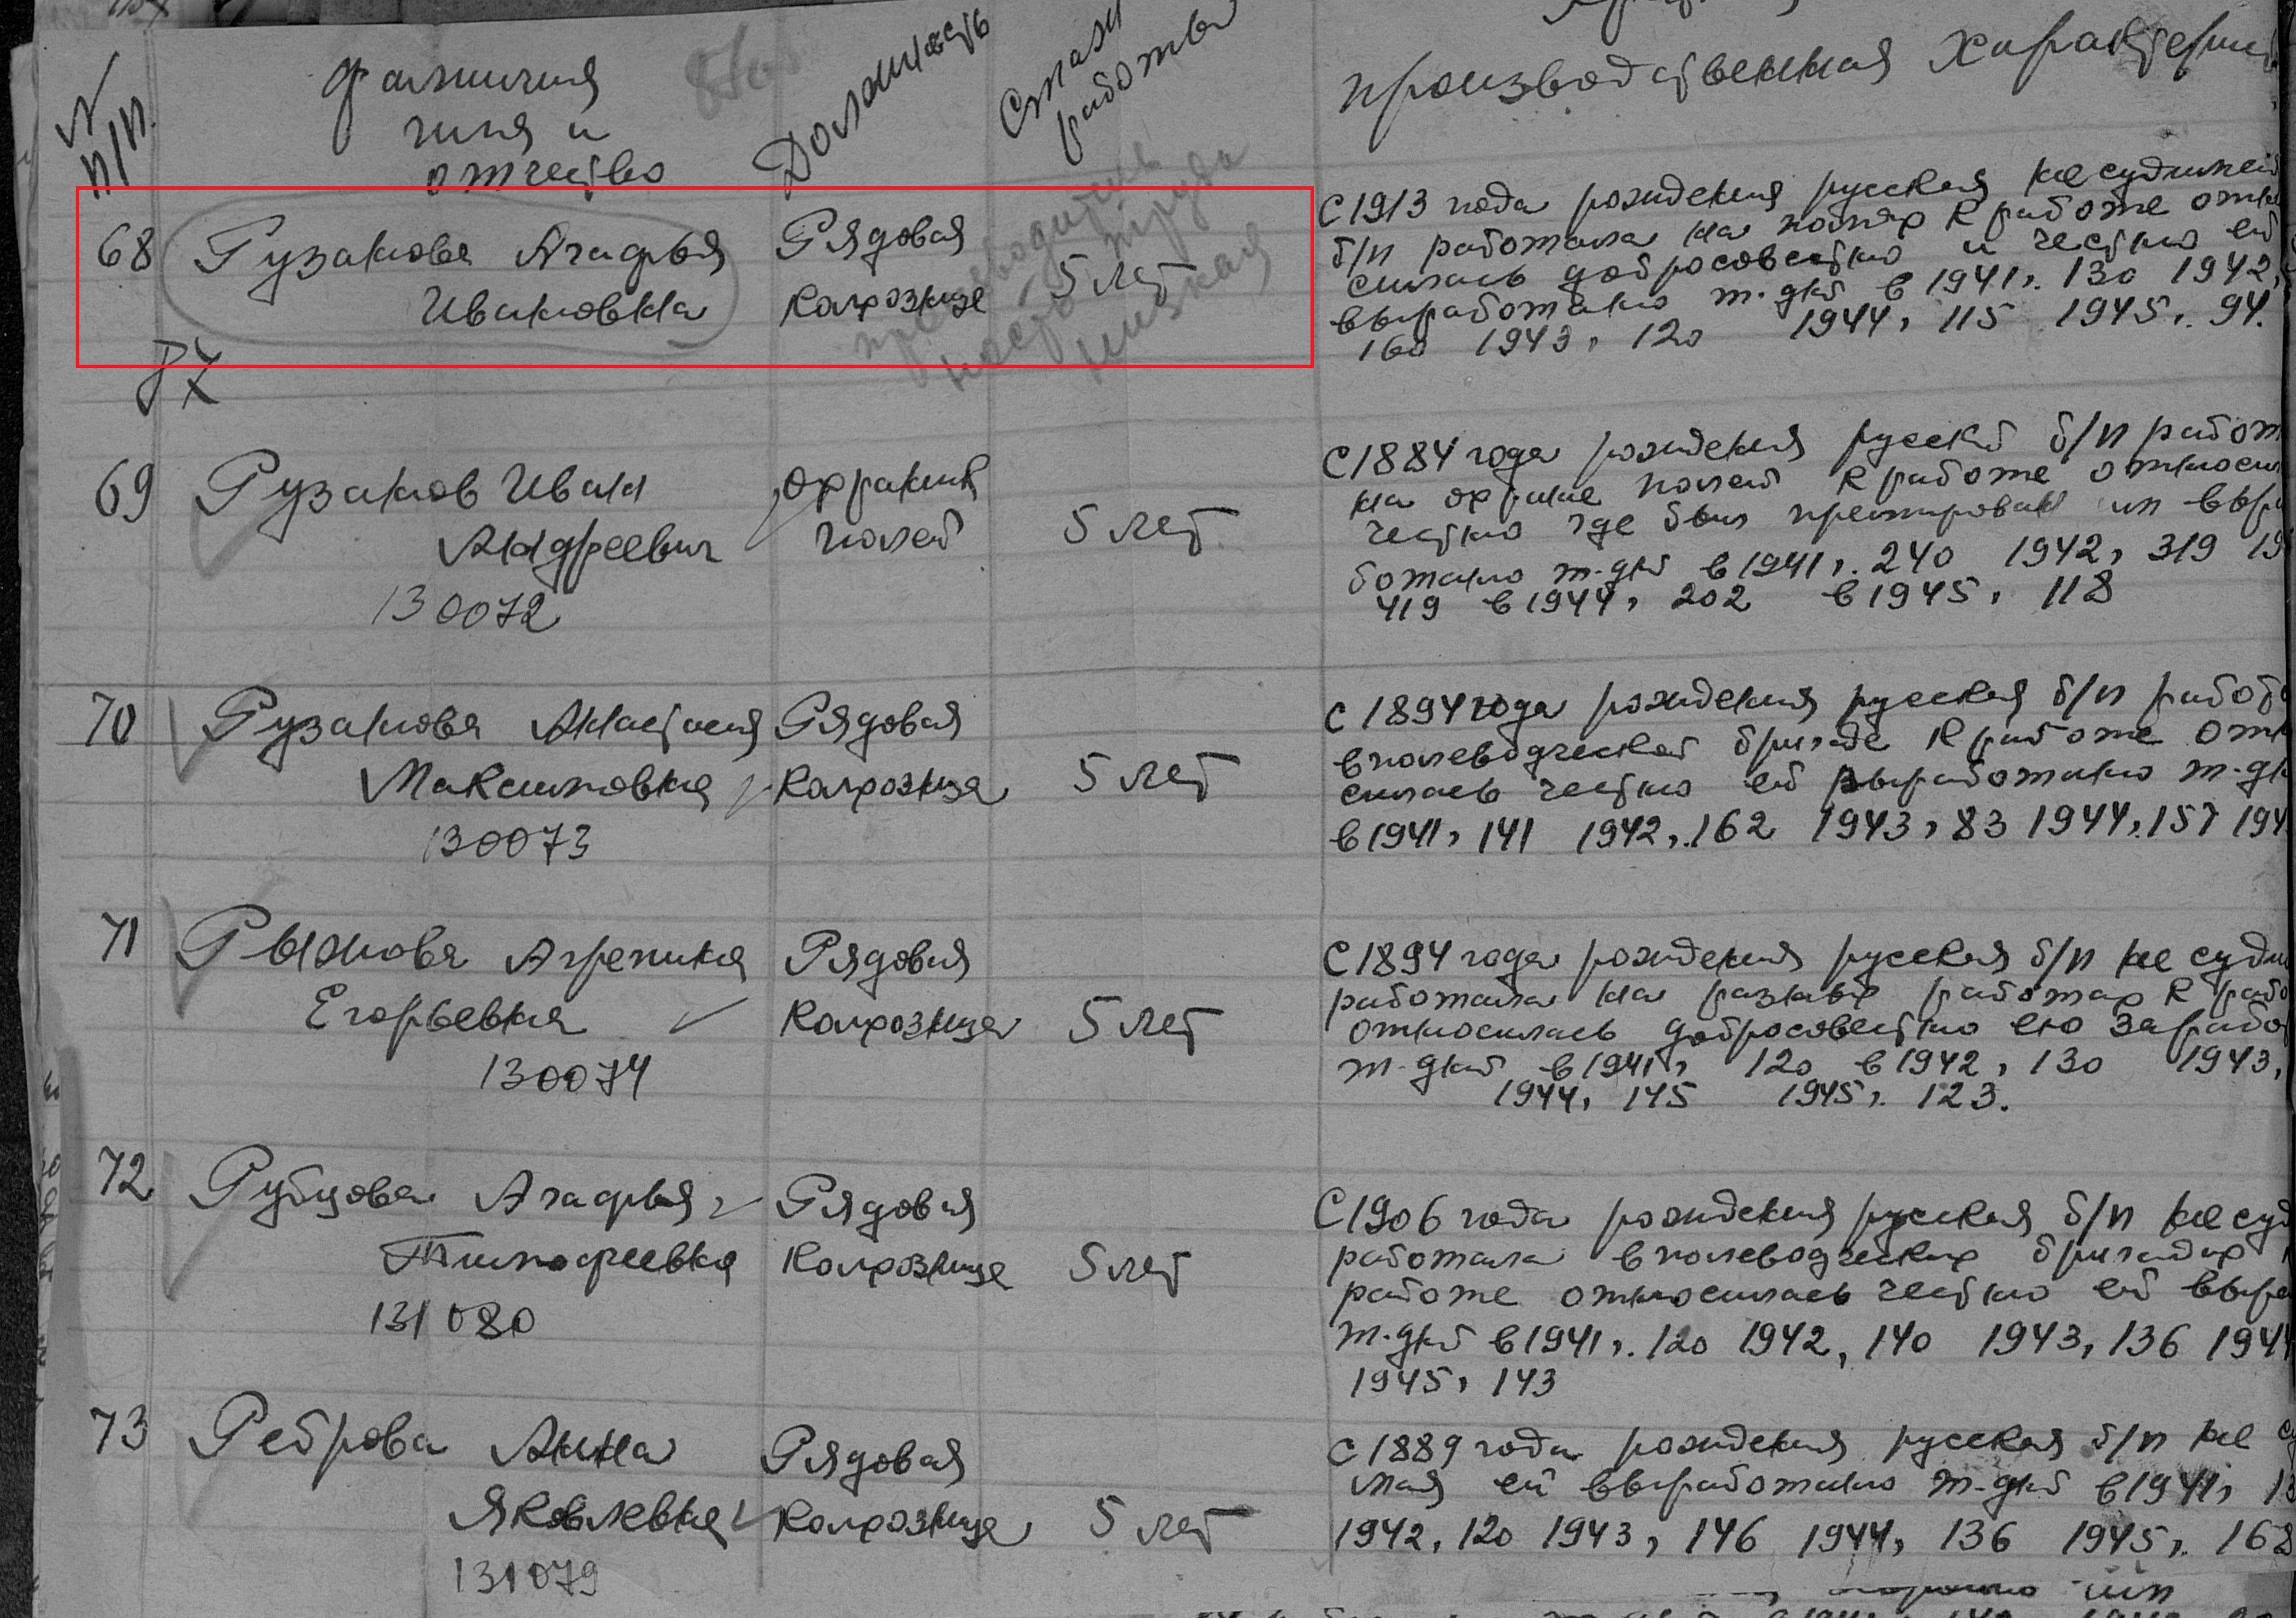 N п/п.
фамилия
имя и
отчество
Должность
Стаж
работы
производственная характерис
68 Рузанова Агафья
Ивановна
Рядовая
колхозница
5 лет
производитель
ность труда
низкая
С 1913 года рождения русская не судимая
б/п работала на полях к работе отно
силась добросовестно и честно ей
выработано т.дней в 1941г. 130 1942г
160 1943г 120 1944г 115 1945г. 94.
69 Рузанов Иван
Андреевич
130072
охранник
полей
5 лет
С 1884 года рождения русский б/п работ
на охране полей к работе относил
честно где был премирован им выра
ботано т.дней в 1941г. 240 1942г 319 19
419 в 1944г 202 в 1945г 118
70 Рузанова Анастасия
Максимовна
130073
Рядовая
колхозница
5 лет
С 1894 года рождения русская б/п работа
в полеводческой бригаде к работе отно
силась честно ей выработано т.дн
в 1941г 141 1942г. 162 1943г 83 1944г. 157 194
71 Рыжкова Агрепина
Егорьевна
130074
Рядовая
колхозница
5 лет
С 1894 года рождения русская б/п не суди
работала на разных работах к рабо
относилась добросовестно ею зарабо
т.дней в 1941г 120 в 1942г 130 1943г
1944г 145 1945г. 123.
72 Рубцова Агафья
Тимофеевна
131080
Рядовая
колхозница
5 лет
С 1906 года рождения русская б/п не суд
работала в полеводческих бригадах
работе относилась честно ей выра
т.дней в 1941г. 120 1942г 140 1943г 136 194
1945г 143
73 Реброва Анна
Яковлевна
131079
Рядовая
колхозница
5 лет
С 1889 года рождения русская б/п не с
мая ей выработано т.дней в 1941г 1
1942г 120 1943г 146 1944г 136 1945г. 168